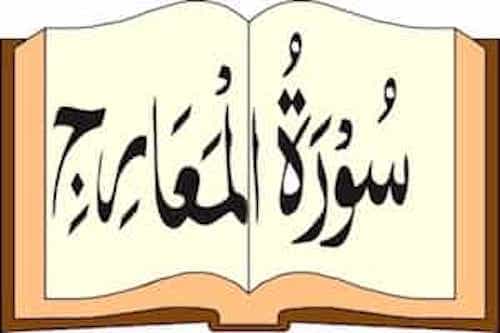 سُوْرَةُ الْمَعَارِجِ